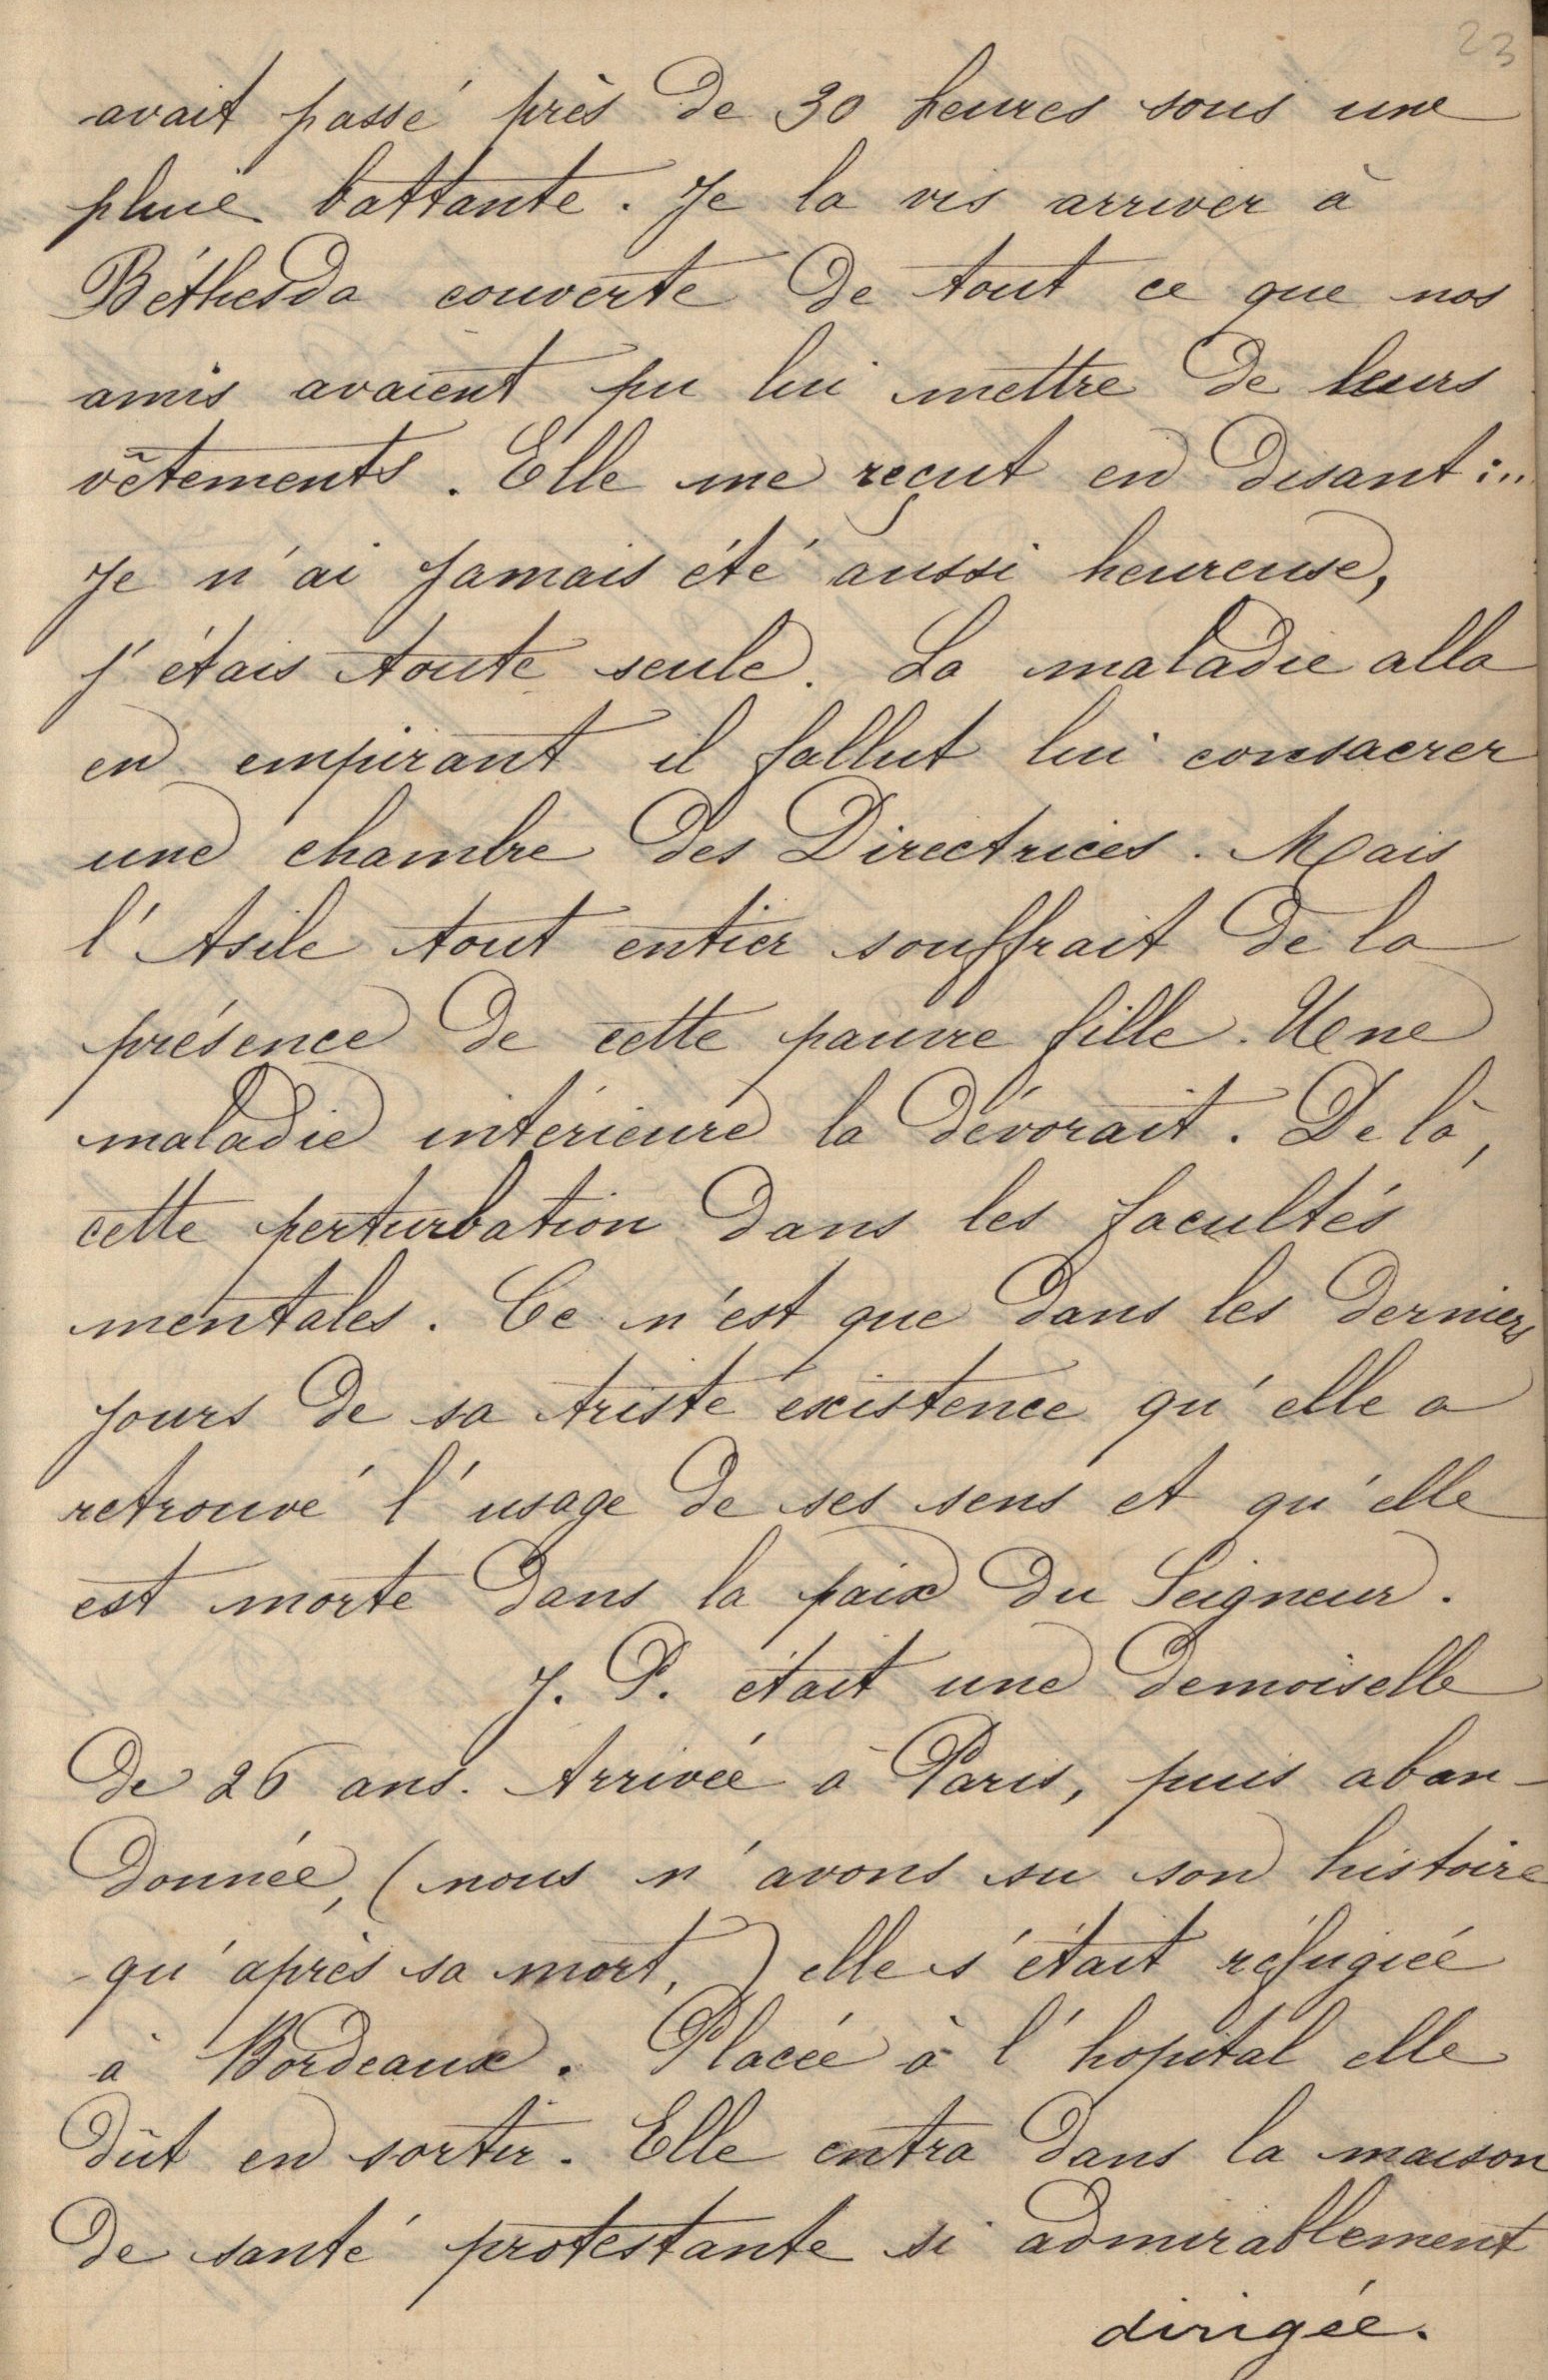 23
avait passé près de 30 heures sous une
pluie battante. Je la vis arriver à
Béthesda couverte de tout ce que nos
amis avaient pu lui mettre de leurs
vêtements. Elle me reçut en disant :..
Je n'ai jamais été aussi heureuse,
j'étais toute seule. La maladie alla
en empirant il fallut lui consacrer
une chambre des Directrices. Mais
l'Asile tout entier souffrait de la
présence de cette pauvre fille. Une
maladie intérieure la dévorait. De là,
cette perturbation dans les facultés
mentales. Ce n'est que dans les derniers
jours de sa triste existence qu'elle a
retrouvé l'usage de ses sens et qu'elle
est morte dans la paix du Seigneur.
J. P. était une demoiselle
de 26 ans. Arrivée à Paris, puis aban-
donnée, (nous n'avons su son histoire
qu'après sa mort,) elle s'était réfugiée
à Bordeaux. Placée à l'hopital elle
dût en sortir. Elle entra dans la maison
de santé protestante si admirablement
dirigée.